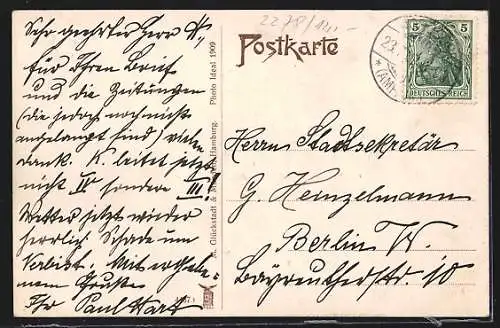 Sehr geehrter Herr H.,
für Ihren Brief
und die Zeitungen
(die jedoch noch nicht
angelangt sind) vielen
Dank. K. leitet jetzt
nicht IV sondern III!
Wetter jetzt wieder
herrlich. Schade um
Verlust. Mit ergebe-
nem Gruss
Ihr Paul
2278/
Postkarte
5 5
DEUTSCHES REICH
23.
Glückstadt & Hamburg. Photo Ideal 1909
Herrn Stadtsekretär
G. Heinzelmann
Berlin W.
Bayreutherstr. 10